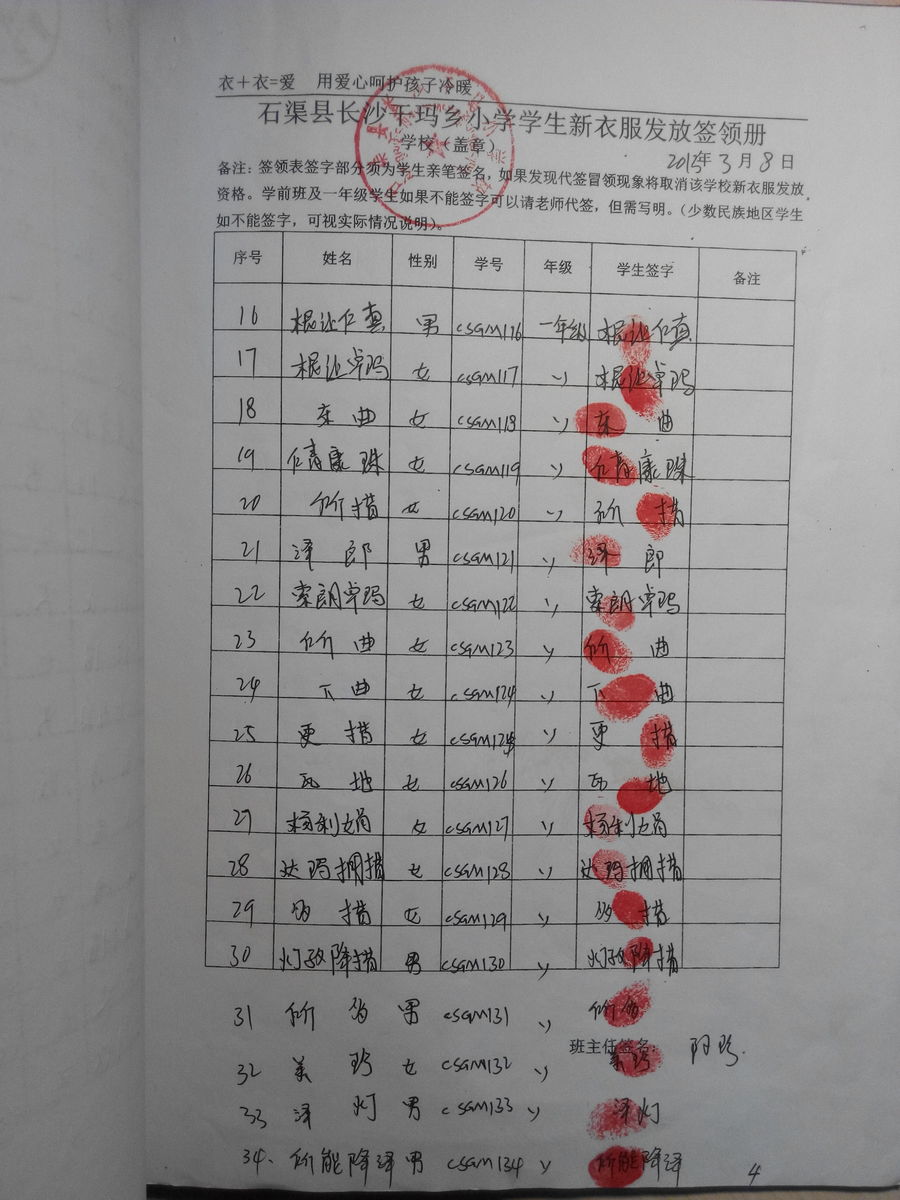 衣+衣=爱 用爱心呵护孩子冷暖
石渠县长沙干玛乡小学学生新衣服发放签领册
学校（盖章）
2015年3月8日
备注：签领表签字部分须为学生亲笔签名，如果发现代签冒领现象将取消该学校新衣服发放
资格。学前班及一年级学生如果不能签字可以请老师代签，但需写明。（少数民族地区学生
如不能签字，可视实际情况说明）。
序号 姓名 性别 学号 年级 学生签字 备注
16 根让仁真 男 csgm116 一年级 根让仁真
17 根让卓玛 女 csgm117 〃 根让卓玛
18 东曲 女 csgm118 〃 东曲
19 仁青康珠 女 csgm119 〃 仁青康珠
20 措 女 csgm120 〃 措
21 泽郎 男 csgm121 〃 泽郎
22 索朗卓玛 女 csgm122 〃 索朗卓玛
23 曲 女 csgm123 〃 曲
24 下曲 女 csgm124 〃 下曲
25 更措 女 csgm125 〃 更措
26 地 女 csgm126 〃 地
27 杨利娟 女 csgm127 〃 杨利娟
28 达玛拥措 女 csgm128 〃 达玛拥措
29 措 女 csgm129 〃 措
30 降措 男 csgm130 〃 降措
31 男 csgm131 〃
班主任签名：
32 美珍 女 csgm132 〃 美珍
33 泽灯 男 csgm133 〃 泽灯
34. 能降泽 男 csgm134 〃 能降泽
4